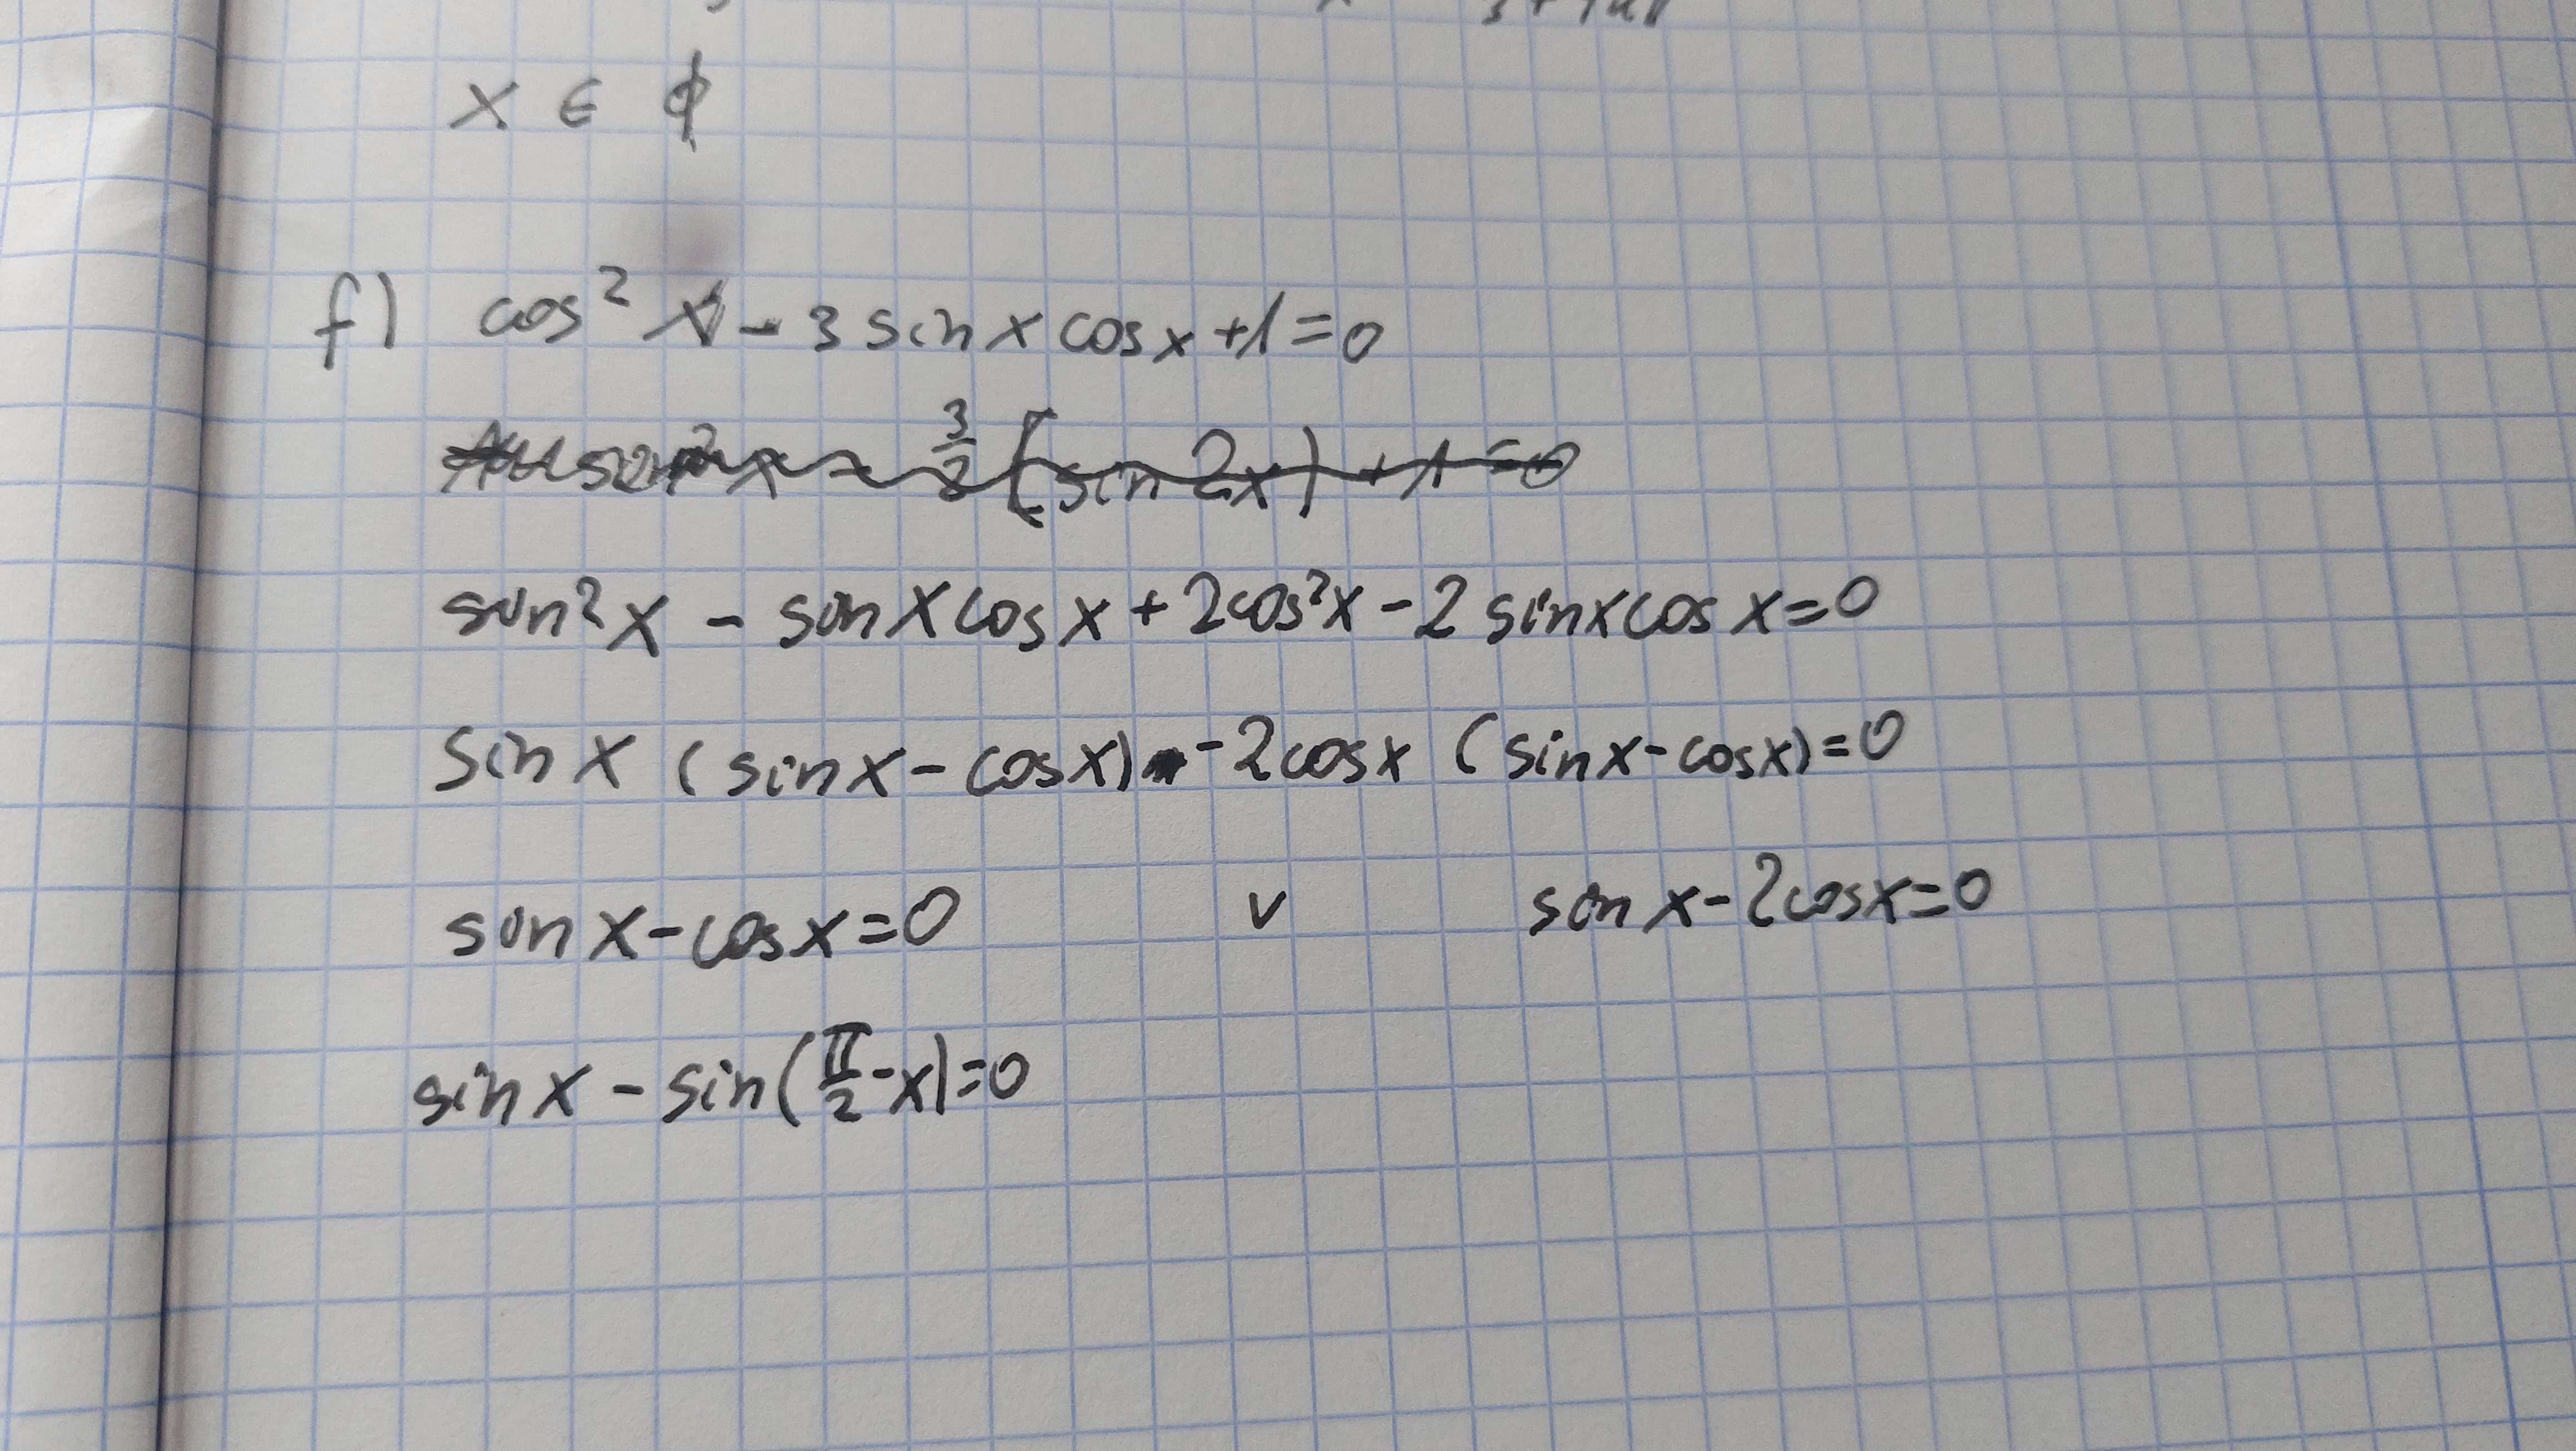 x ∈ ϕ
f) cos² x - 3 sin x cos x + 1 = 0
- 3/2 (sin 2x) + 1 = 0
sin² x - sin x cos x + 2 cos² x - 2 sin x cos x = 0
sin x (sin x - cos x) - 2 cos x (sin x - cos x) = 0
sin x - cos x = 0 v sin x - 2 cos x = 0
sin x - sin (π/2 - x) = 0